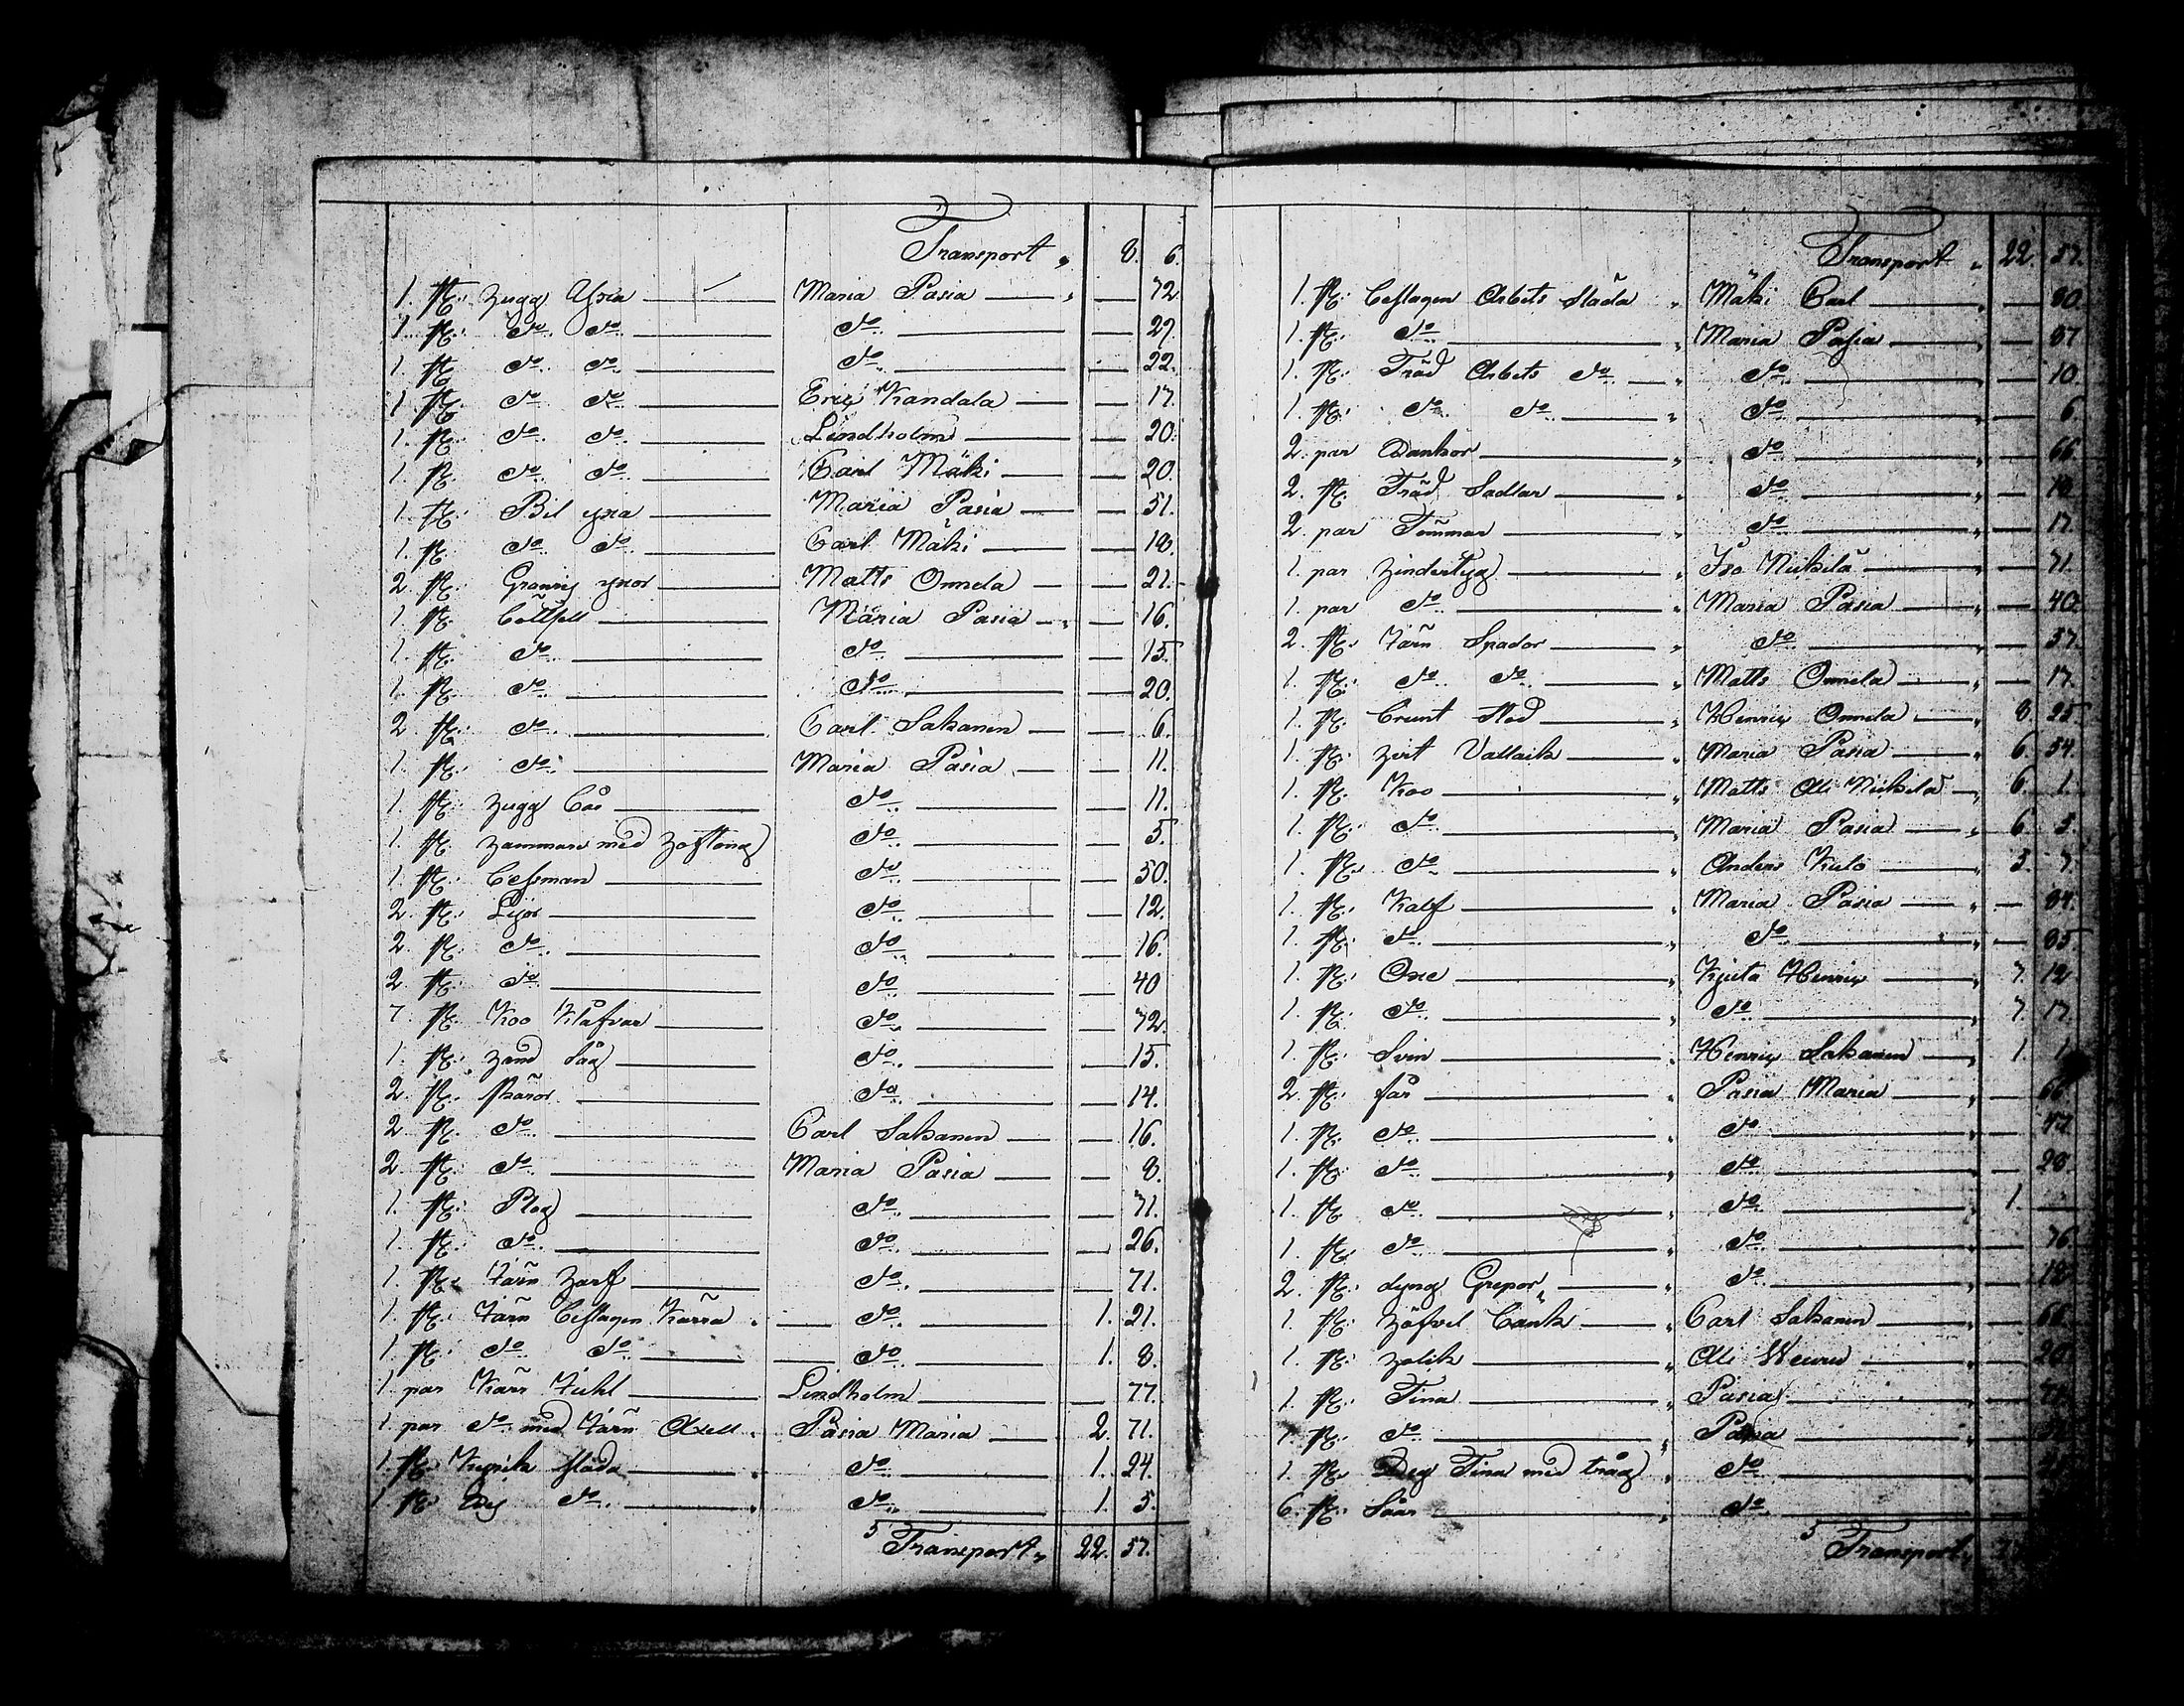 Transport „ 8. 6.
1. st: Zugg Yxa — Maria Pasia — „ — 72
1. st: do do — do — 27.
1. st: do do — do — 22.
1. st: do do — Eric Kandala — 17.
1. st: do do — Lindholm — 20.
1. st: do do — Carl Mäki — 20.
1. st: Bil yxa — Maria Pasia — 51.
1. st: do do — Carl Mäki — 18.
2. st: yxor — Matts Onnela — 21.
1. st: — Maria Pasia — „ — 16.
1. st: do — do — 15.
1. st: do — do — 20.
2. st: do — Carl Sakanen — 6.
1. st: do — Maria Pasia — 11.
1. st: Zugg — do — 11.
1. st: Zammare med Zoftång do — 5.
1. st: Cessman — do — 50.
2. st: Lijor — do — 12.
2. st: do — do — 16.
2. st: do — do — 40
7. st: Koo Klåfvar — do — 72.
1. st: Zand Såg — do — 15.
2. st: skäror — do — 14.
2. st: do — Carl Sakanen — 16.
2. st: do — Maria Pasia — 8.
1. st: Plog — do — 71.
1. st: do — do — 26.
1. st: Järn Zarf — do — 71.
1. st: Järn Ceslagen Kärra „ — do — 1. 21.
1. st: do do — do — 1. 8.
1. par Kärr Juhl — Lindholm — 77.
1. par do med Järn Axell „ Pasia Maria — 2. 71.
1. st: Kyrik släda — „ do — 1. 24.
1. st: do — „ do — 1. 5.
5 Transport „ 22. 57.
Transport „ 22. 57.
1. st: Ceslagen Arbets Släda „ Mäki Carl — 80.
1. st: do — „ Maria Pasia — „ — 87
1. st: Träd Arbets do — „ do — „ — 10.
1. st: do do — „ do — „ — 6
2. par Rankor — do — „ — 66.
2. st: Träd Sadlar — „ do — „ — 18
2. par Tömmar — „ do — „ — 17.
1. par Zindertyg — „ Iso Nickilä — 71.
1. par do — „ Maria Pasia — „ — 40
2. st: Järn Spador — „ do — „ — 57.
1. st: do do — „ Matts Onnela — „ — 17.
1. st: Crunt Stod — „ Henric Onnela — „ 8. 25
1. st: Zvit Vallack — „ Maria Pasia — „ 6. 54.
1. st: Koo — „ Matts Alli Nickilä — „ 6. 1.
1. st: do — „ Maria Pasia — „ 6. 5.
1. st: do — „ Anders Kulo — „ 5. 7.
1. st: Kalf — „ Maria Pasia — „ — 84.
1. st: do — „ do — „ — 85
1. st: Oxe — „ Henric — „ 7. 12
1. st: do — „ do — „ 7. 17.
1. st: Svin — „ Henric Sakanen — „ 1. 1
2. st: får — „ Pasia Maria — „ — 66
1. st: do — „ do — „ — 47
1. st: do — „ do — „ — 28
1. st: do — „ do — „ 1. —
1. st: do — „ do — „ — 76.
2. st: dyng Grepor „ — do — „ — 12
1. st: Zöfvel Cänk — „ Carl Sakanen — „ — 66
1. st: Zolik — „ Alli — „ — 20
1. st: Tina — „ Pasia — „
1. st: do — „ Pasia — „
1. st: Deg Tina med tråg „ do —
6. st: Såar — „ do —
5 Transport „